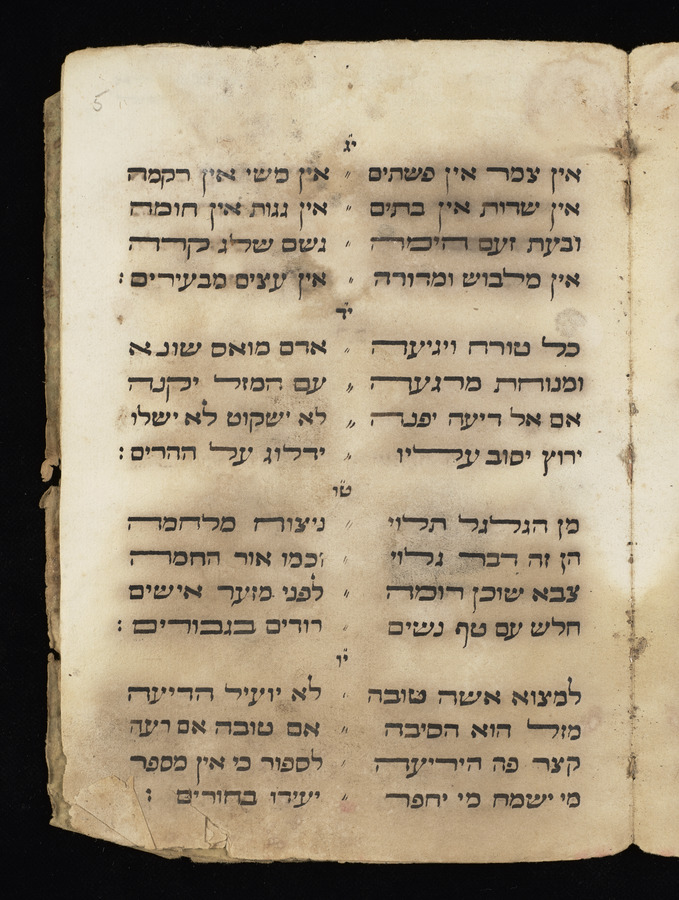 5
י״ג
אין צמר אין פשתים ״ אין משי אין רקמה
אין שדות אין בתים ״ אין גגות אין חומה
ובעת זעם הימרה ״ גשם שלג קררה
אין מלבוש ומדורה ״ אין עצים מבעירים :
י״ד
כל טורח ויגיעה ״ אדם מואס שונא
ומנוחת מרגעה ״ עם המזל יקנה
אם אל דיעה יפנה ״ לא ישקוט לא ישלו
ירוץ יסוב עליו ״ ידלוג על ההרים :
ט״ו
מן הגלגל תלוי ״ ניצוח מלחמה
הן זה דבר גלוי ״ וכמו אור החמה
צבא שוכן רומה ״ לפני מזער אישים
חלש עם טף נשים ״ רודים בגבורים :
י״ו
למצוא אשה טובה ״ לא יועיל הדיעה
מזל הוא הסיבה ״ אם טובה אם רעה
קצר פה היריעה ״ לספור כי אין מספר
מי ישמח מי יחפר ״ יעידו בחורים :